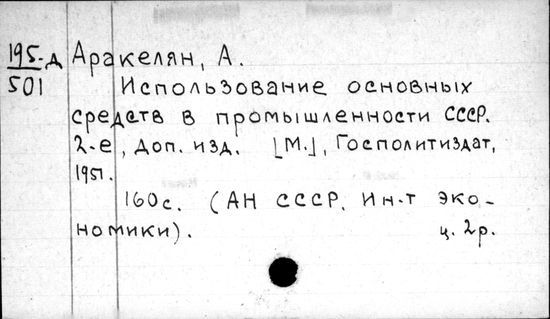 195-д Аракелян, А.
501 Использование основных
средств в промышленности СССР.
2-е, доп. изд. [М.], Госполитиздат,
1951.
160с. (АН СССР. Ин-т эко-
номики). ц. 2р.